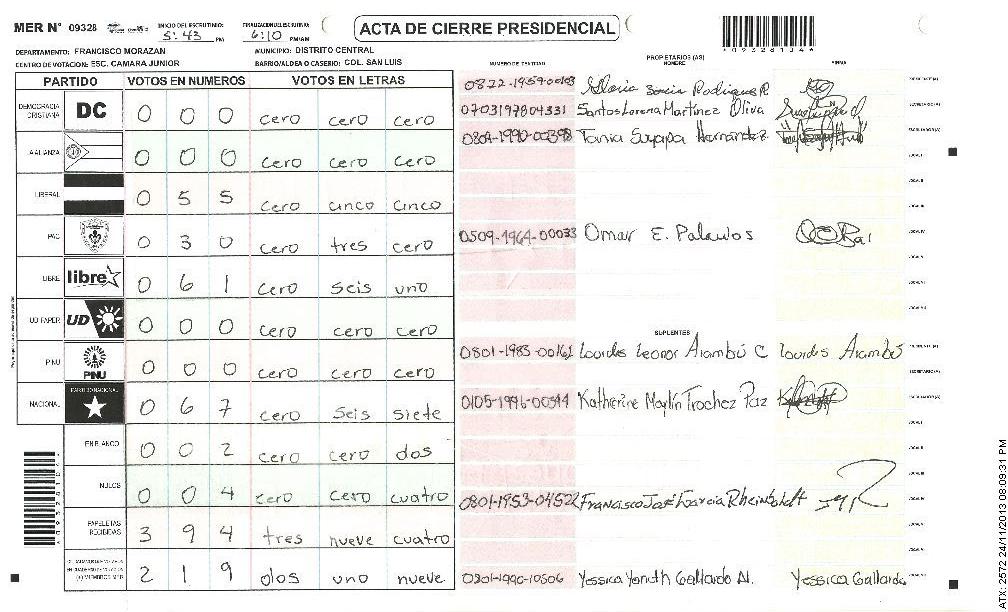 MER N° 09328 INICIO DEL ESCRUTINIO: 5:43 PM FINALIZACION ESCRUTINIO: 6:10 PM/AM
ACTA DE CIERRE PRESIDENCIAL
DEPARTAMENTO: FRANCISCO MORAZAN MUNICIPIO: DISTRITO CENTRAL
CENTRO DE VOTACION: ESC. CAMARA JUNIOR BARRIO/ALDEA O CASERIO: COL. SAN LUIS
PARTIDO VOTOS EN NUMEROS VOTOS EN LETRAS
DEMOCRACIA CRISTIANA DC 0 0 0 cero cero cero
LA ALIANZA 0 0 0 cero cero cero
LIBERAL 0 5 5 cero cinco cinco
PAC 0 3 0 cero tres cero
LIBRE libre 0 6 1 cero seis uno
UD FAPER UD 0 0 0 cero cero cero
PINU PINU 0 0 0 cero cero cero
NACIONAL PARTIDO NACIONAL 0 6 7 cero seis siete
EN BLANCO 0 0 2 cero cero dos
NULOS 0 0 4 cero cero cuatro
PAPELETAS RECIBIDAS 3 9 4 tres nueve cuatro
2 1 9 dos uno nueve
NUMERO DE IDENTIDAD PROPIETARIOS (AS) NOMBRE FIRMA
0822-1959-00103 Gloria Sonia Rodriguez R.
0703197804331 Santos Lorena Martínez Oliva
0801-1990-00398 Tania Suyapa Hernandez
0509-1964-00033 Omar E. Palacios
SUPLENTES
0801-1985-00161 Lourdes Leonor Arambú C Lourdes Arambú
0105-1996-00544 Katherine Maylín Trochez Paz
0801-1953-04522 Francisco José Garcia Rheinboldt
0801-1990-10506 Yessica Yamith Gallardo N. Yessica Gallardo
ATX: 2572 24/11/2013 08:09:31 PM